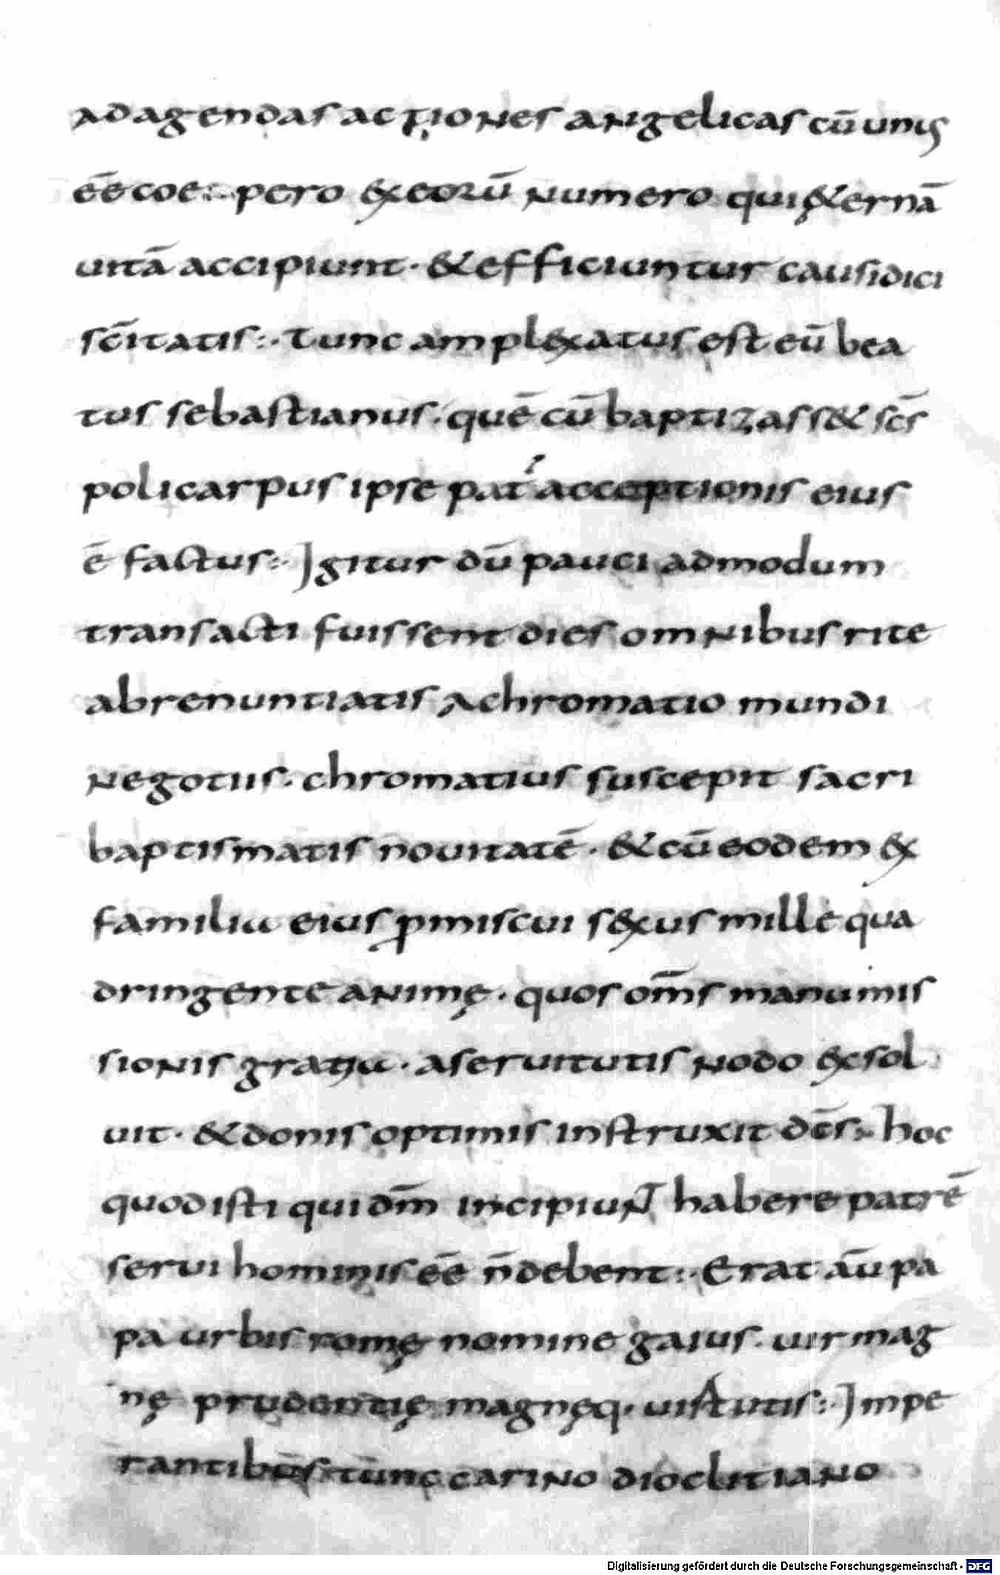 ad agendas actiones angelicas cū unis
ēē coepero ex eorū numero qui & ernā
uitā accipiunt · & efficiuntur causidici
scītatis :· Tunc amplexatus est eū bea
tus sebastianus · quē cū baptizass& scs̄
policarpus ipse pat͛ acceptionis eius
ē factus :· Igitur dū pauci admodum
transacti fuissent dies omnibus rite
abrenuntiatis a chromatio mundi
negotiis · chromatius suscepit sacri
baptismatis nouitatē · & cū eodem ex
familia eius ꝓmiscui sexus mille qua
dringente animę · quos om̄s manumis
sionis gratia · a seruitutis nodo exsol
uit · & donis optimis instruxit dcēs :· hoc
quod isti qui dm̄ incipiunt habere patrē
serui hominis ēē n̄ debent :· Erat aū pa
pa urbis romę nomine gaius · uir mag
nę prudentię magnęq· uirtutis :· Impe
rantibus tunc carino diocletiano
Digitalisierung gefördert durch die Deutsche Forschungsgemeinschaft - DFG